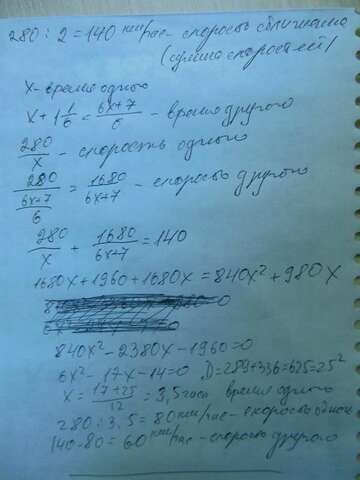 280 : 2 = 140 км/час - скорость сближения
(сумма скоростей)
х - время одного
х + 1 1/6 = (6х+7)/6 - время другого
280/х - скорость одного
280/((6х+7)/6) = 1680/(6х+7) - скорость другого
280/х + 1680/(6х+7) = 140
1680х + 1960 + 1680х = 840х² + 980х
840х² - 2380х - 1960 = 0
6х² - 17х - 14 = 0 , D = 289 + 336 = 625 = 25²
х = (17+25)/12 = 3,5 часа время одного
280 : 3,5 = 80 км/час - скорость одного
140 - 80 = 60 км/час - скорость другого